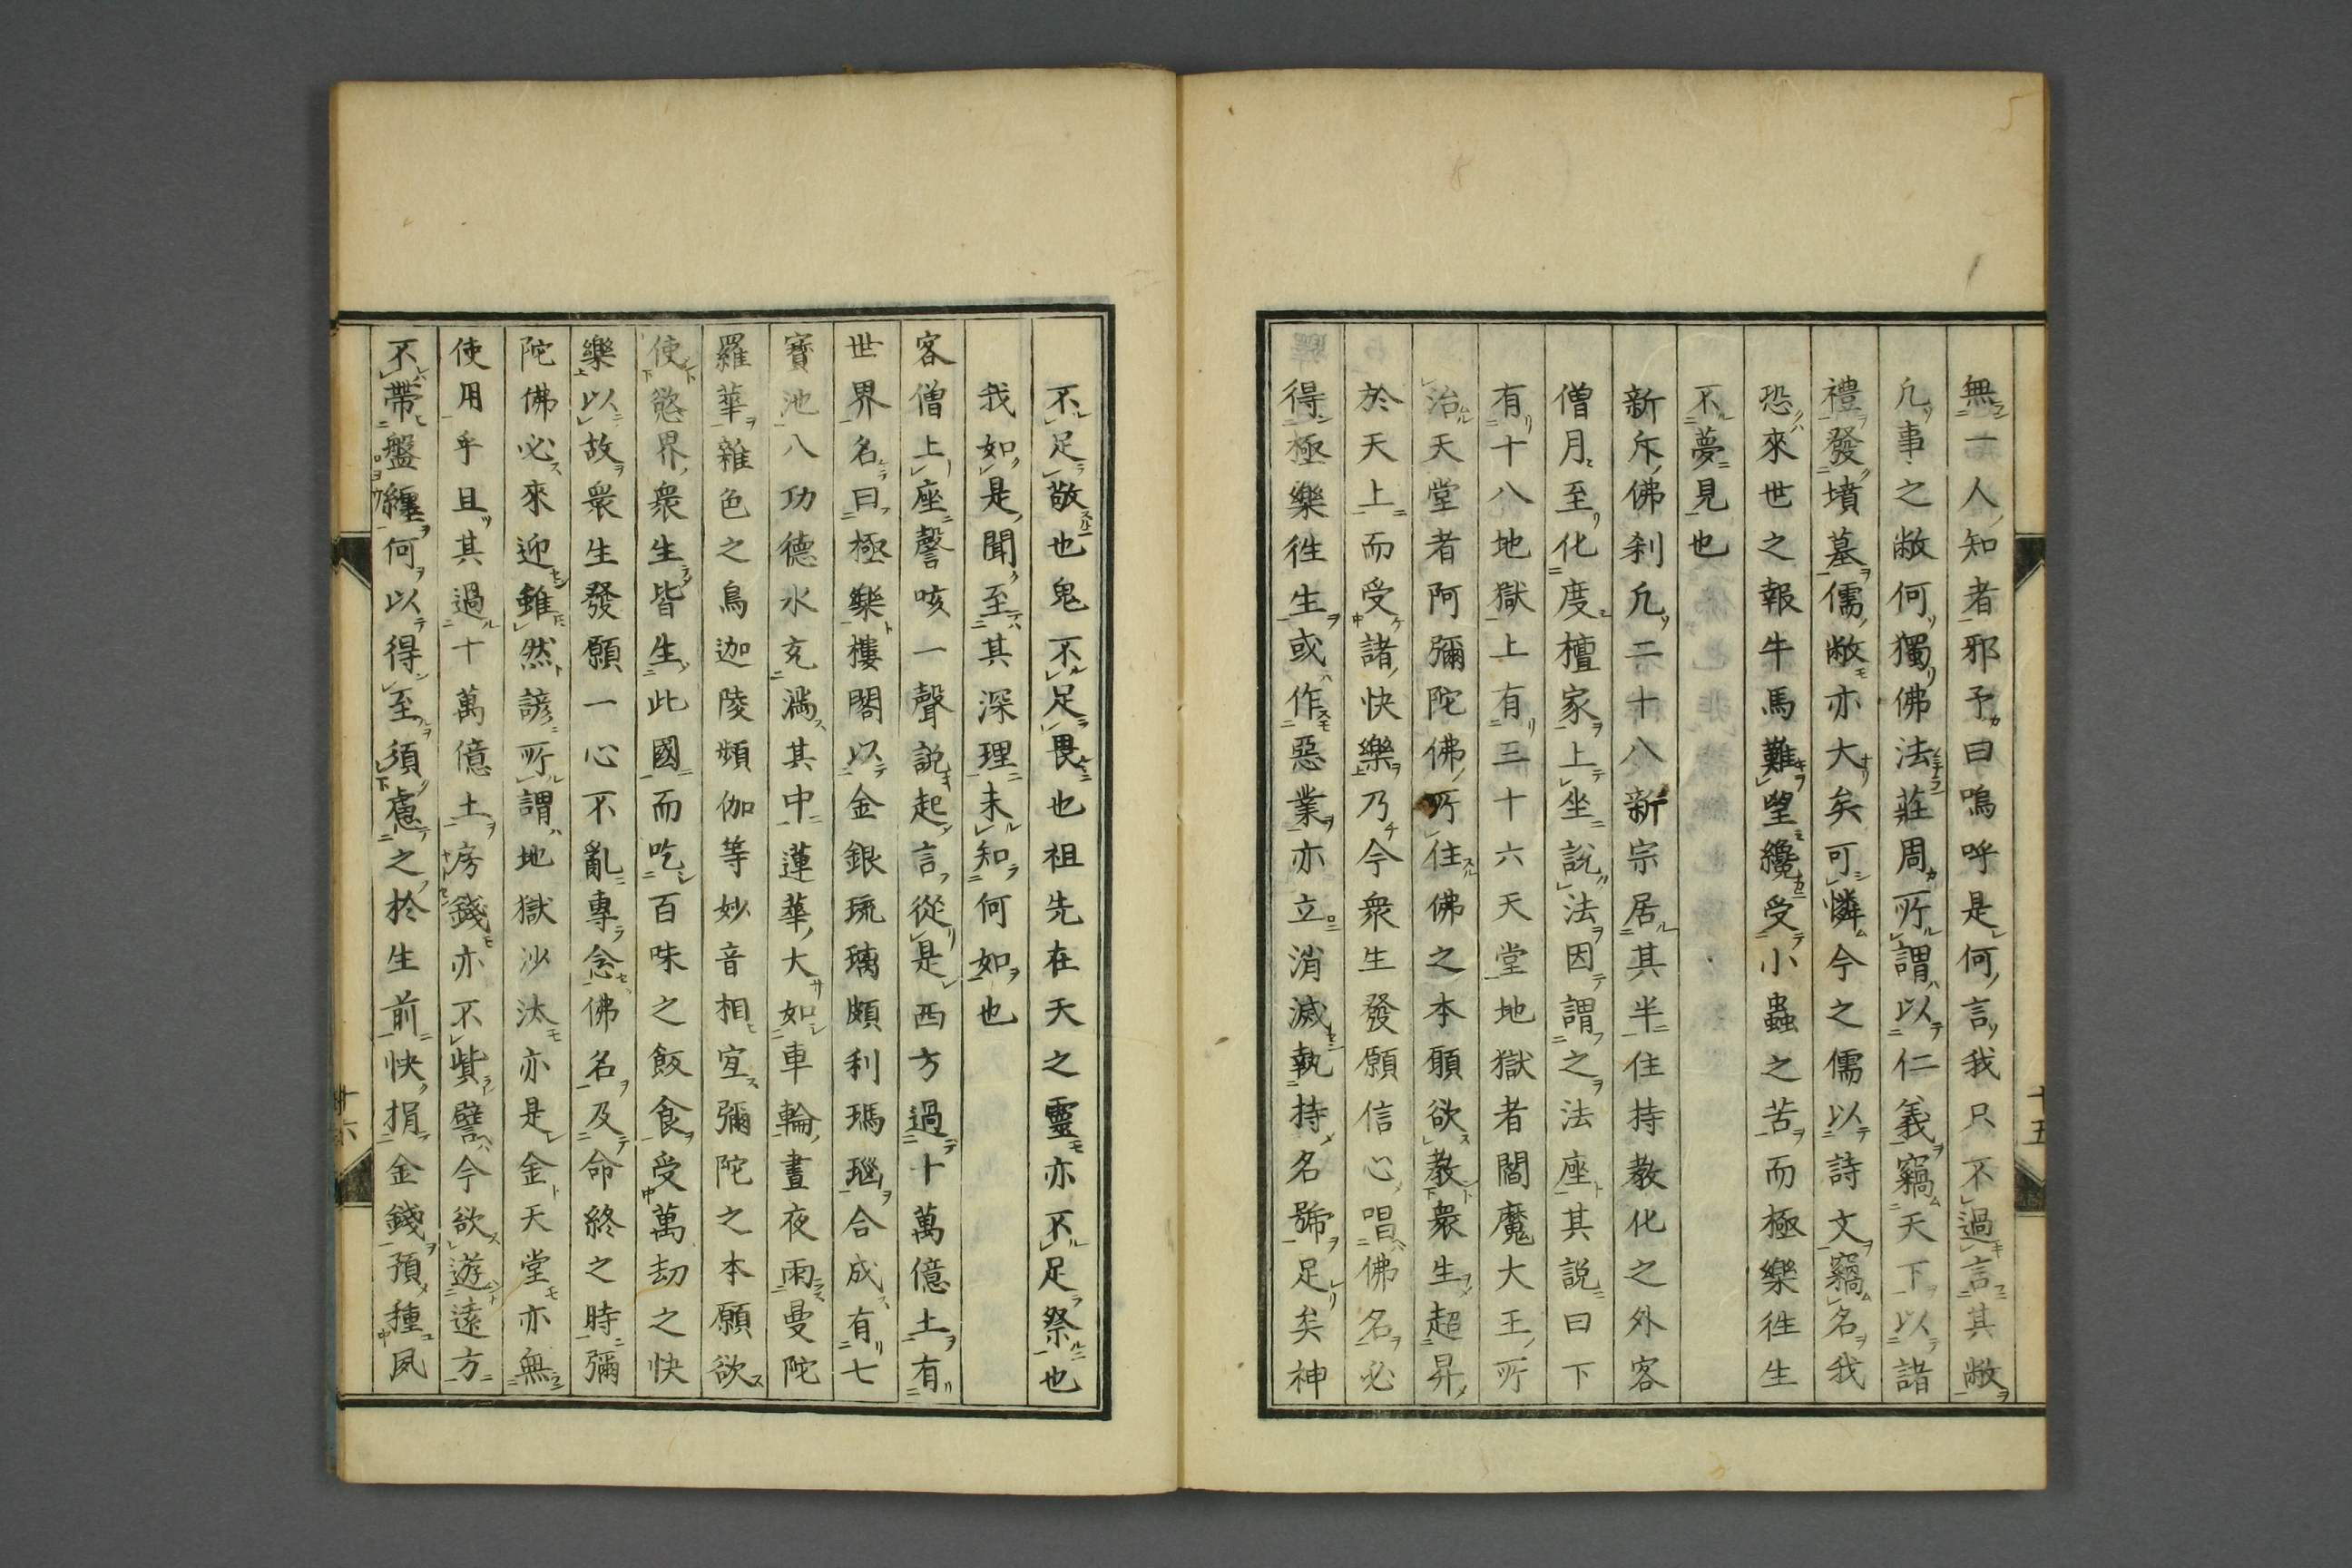 無一人知者邪予曰嗚呼是何言我只不過言其敝
凢事之敝何獨佛法莊周所謂以仁義竊天下以諸
禮發墳墓儒敝亦大矣可憐今之儒以詩文竊名我
恐來世之報牛馬難望纔受小蟲之苦而極樂徃生
不夢見也
新斥佛刹凢二十八新宗居其半住持教化之外客
僧月至化度檀家上坐說法因謂之法座其説曰下
有十八地獄上有三十六天堂地獄者閻魔大王所
治天堂者阿彌陀佛所住佛之本願欲教衆生超昇
於天上而受諸快樂乃今衆生發願信心唱佛名必
得極樂徃生或作惡業亦立消滅執持名號足矣神
十五
不足敬也鬼不足畏也祖先在天之靈亦不足祭也
我如是聞至其深理未知何如也
客僧上座謦咳一聲説起言從是西方過十萬億土有
世界名曰極樂樓閣以金銀琉璃頗利瑪瑙合成有七
寳池八功德水充滿其中蓮華大如車輪晝夜雨曼陀
羅華雜色之鳥迦陵頻伽等妙音相宣彌陀之本願欲
使慾界衆生皆生此國而吃百味之飯食受萬劫之快
樂以故衆生發願一心不亂專念佛名及命終之時彌
陀佛必來迎雖然諺所謂地獄沙汰亦是金天堂亦無
使用乎且其過十萬億土房錢亦不貲譬今欲遊遠方
不帶盤纏何以得至須慮之於生前快捐金錢預種夙
十六